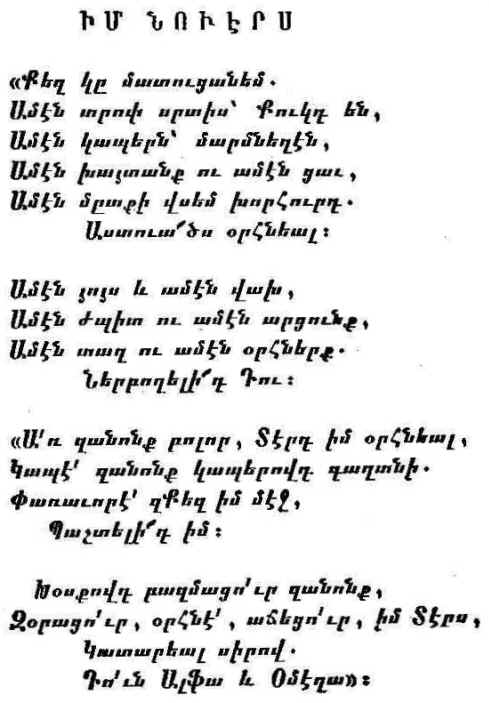 ԻՄ ՆՈՒԷՐՍ
«Քեզ կը մատուցանեմ.
Ամէն տրոփ սրտիս՝ Քուկդ են,
Ամէն կապերն՝ մարմնեղէն,
Ամէն խայտանք ու ամէն ցաւ,
Ամէն մըտքի վսեմ խորհուրդ.
Աստուա՜ծս օրհնեալ։
Ամէն յոյս և ամէն վախ,
Ամէն ժպիտ ու ամէն արցունք,
Ամէն տաղ ու ամէն օրհներք.
Ներբողելի՜դ Դու։
«Ա՛ռ զանոնք բոլոր, Տէրդ իմ օրհնեալ,
Կապէ՛ զանոնք կապերովդ գաղտնի.
Փառաւորէ՛ զՔեզ իմ մէջ,
Պաշտելի՜դ իմ։
Խօսքովդ բազմացո՛ւր զանոնք,
Զօրացո՛ւր, օրհնէ՛, աճեցո՛ւր, իմ Տէրս,
Կատարեալ սիրով.
Դո՛ւն Ալֆա և Օմէղա»։